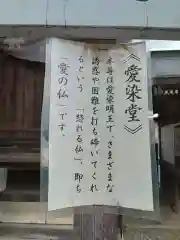 《愛染堂》
本尊は愛染明王で、さまざまな
誘惑や困難を打ち砕いてくれ
るという「怒れる仏」、即ち
「愛の仏」です。